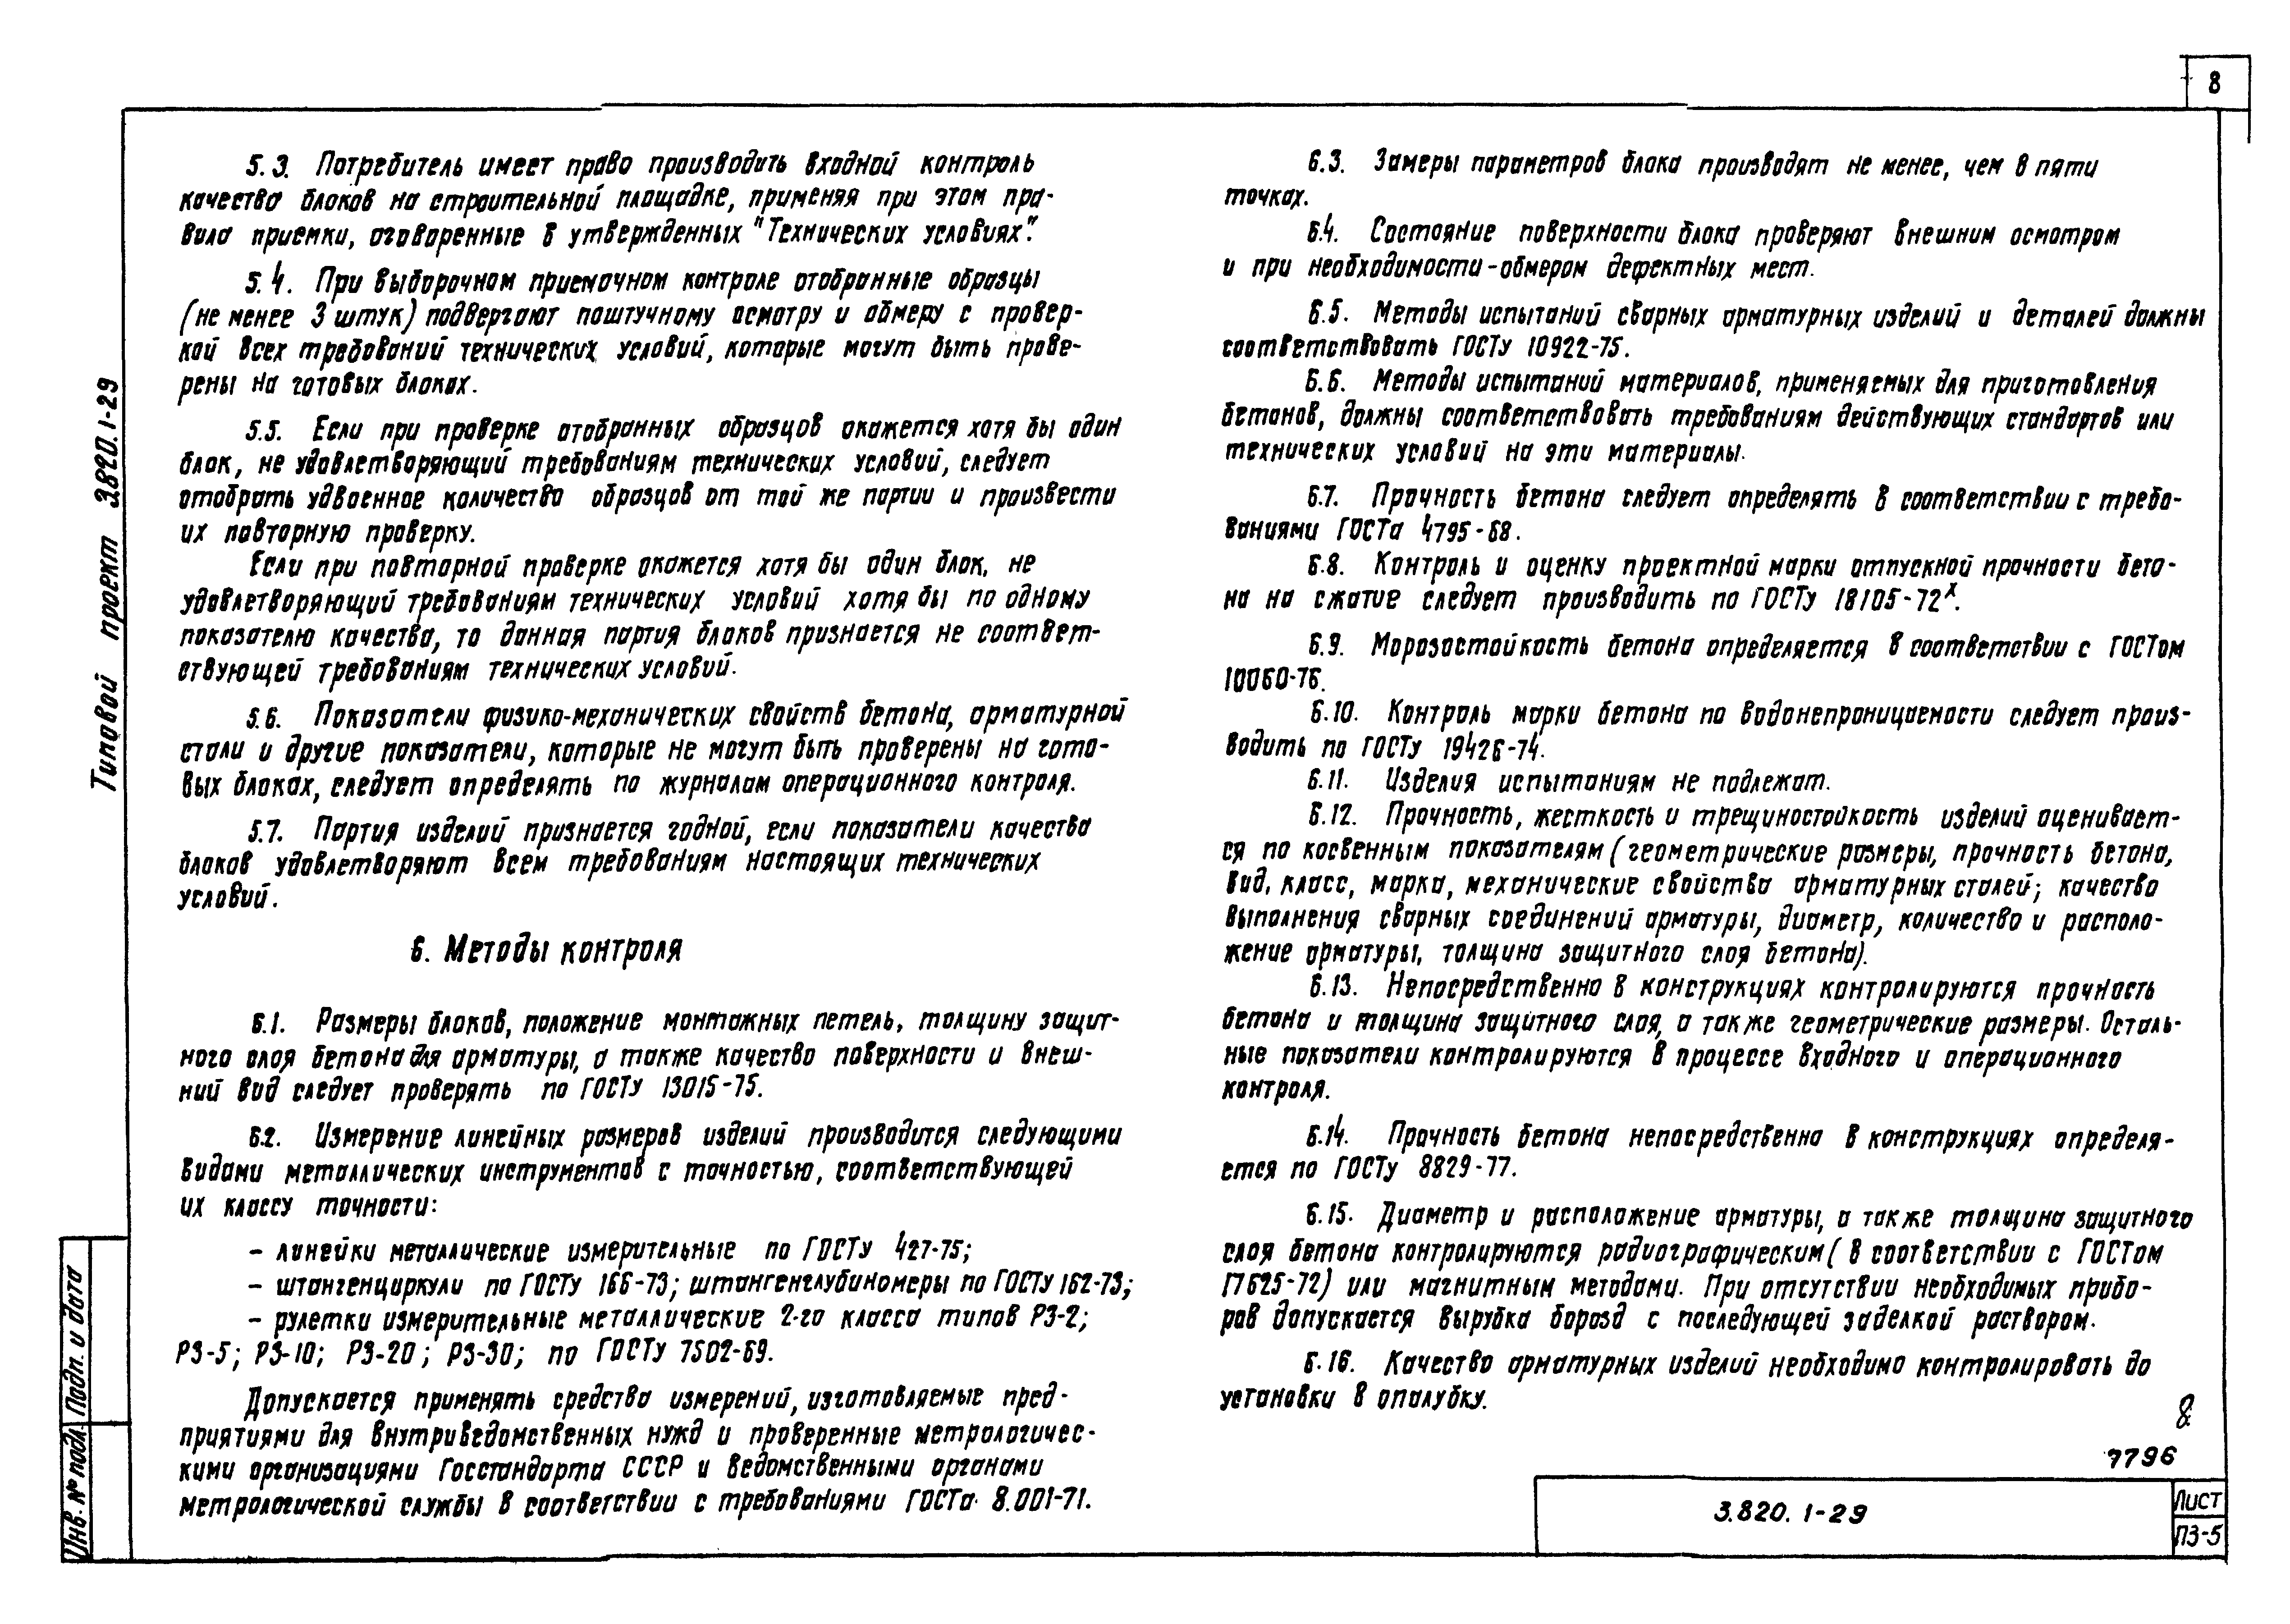 8
5.3. Потребитель имеет право производить входной контроль
качества блоков на строительной площадке, применяя при этом пра-
вила приемки, оговоренные в утвержденных "Технических условиях".
5.4. При выборочном приемочном контроле отобранные образцы
(не менее 3 штук) подвергают поштучному осмотру и обмеру с провер-
кой всех требований технических условий, которые могут быть прове-
рены на готовых блоках.
5.5. Если при проверке отобранных образцов окажется хотя бы один
блок, не удовлетворяющий требованиям технических условий, следует
отобрать удвоенное количество образцов от той же партии и произвести
их повторную проверку.
Если при повторной проверке окажется хотя бы один блок, не
удовлетворяющий требованиям технических условий хотя бы по одному
показателю качества, то данная партия блоков признается не соответ-
ствующей требованиям технических условий.
5.6. Показатели физико-механических свойств бетона, арматурной
стали и другие показатели, которые не могут быть проверены на гото-
вых блоках, следует определять по журналам операционного контроля.
5.7. Партия изделий признается годной, если показатели качества
блоков удовлетворяют всем требованиям настоящих технических
условий.
6. Методы контроля
6.1. Размеры блоков, положение монтажных петель, толщину защит-
ного слоя бетона для арматуры, а также качество поверхности и внеш-
ний вид следует проверять по ГОСТу 13015-75.
6.2. Измерение линейных размеров изделий производится следующими
видами металлических инструментов с точностью, соответствующей
их классу точности:
- линейки металлические измерительные по ГОСТу 427-75;
- штангенциркули по ГОСТу 166-73; штангенглубиномеры по ГОСТу 162-73;
- рулетки измерительные металлические 2-го класса типов РЗ-2;
РЗ-5; РЗ-10; РЗ-20; РЗ-30; по ГОСТу 7502-69.
Допускается применять средства измерений, изготовляемые пред-
приятиями для внутриведомственных нужд и проверенные метрологичес-
кими организациями Госстандарта СССР и ведомственными органами
метрологической службы в соответствии с требованиями ГОСТа 8.001-71.
6.3. Замеры параметров блока производят не менее, чем в пяти
точках.
6.4. Состояние поверхности блока проверяют внешним осмотром
и при необходимости-обмером дефектных мест.
6.5. Методы испытаний сварных арматурных изделий и деталей должны
соответствовать ГОСТу 10922-75.
6.6. Методы испытаний материалов, применяемых для приготовления
бетонов, должны соответствовать требованиям действующих стандартов или
технических условий на эти материалы.
6.7. Прочность бетона следует определять в соответствии с требо-
ваниями ГОСТа 4795-68.
6.8. Контроль и оценку проектной марки отпускной прочности бето-
на на сжатие следует производить по ГОСТу 18105-72х.
6.9. Морозостойкость бетона определяется в соответствии с ГОСТом
10060-76.
6.10. Контроль марки бетона по водонепроницаемости следует произ-
водить по ГОСТу 19426-74.
6.11. Изделия испытаниям не подлежат.
6.12. Прочность, жесткость и трещиностойкость изделий оценивает-
ся по косвенным показателям (геометрические размеры, прочность бетона,
вид, класс, марка, механические свойства арматурных сталей; качество
выполнения сварных соединений арматуры, диаметр, количество и располо-
жение арматуры, толщина защитного слоя бетона).
6.13. Непосредственно в конструкциях контролируются прочность
бетона и толщина защитного слоя, а также геометрические размеры. Осталь-
ные показатели контролируются в процессе входного и операционного
контроля.
6.14. Прочность бетона непосредственно в конструкциях определя-
ется по ГОСТу 8829-77.
6.15. Диаметр и расположение арматуры, а также толщина защитного
слоя бетона контролируются радиографическим (в соответствии с ГОСТом
17625-72) или магнитным методами. При отсутствии необходимых прибо-
ров допускается вырубка борозд с последующей заделкой раствором.
6.16. Качество арматурных изделий необходимо контролировать до
установки в опалубку.
8
7796
3.820.1-29
Лист
ПЗ-5
Типовой проект 3.820.1-29
Подп. и дата
Инв. № подл.